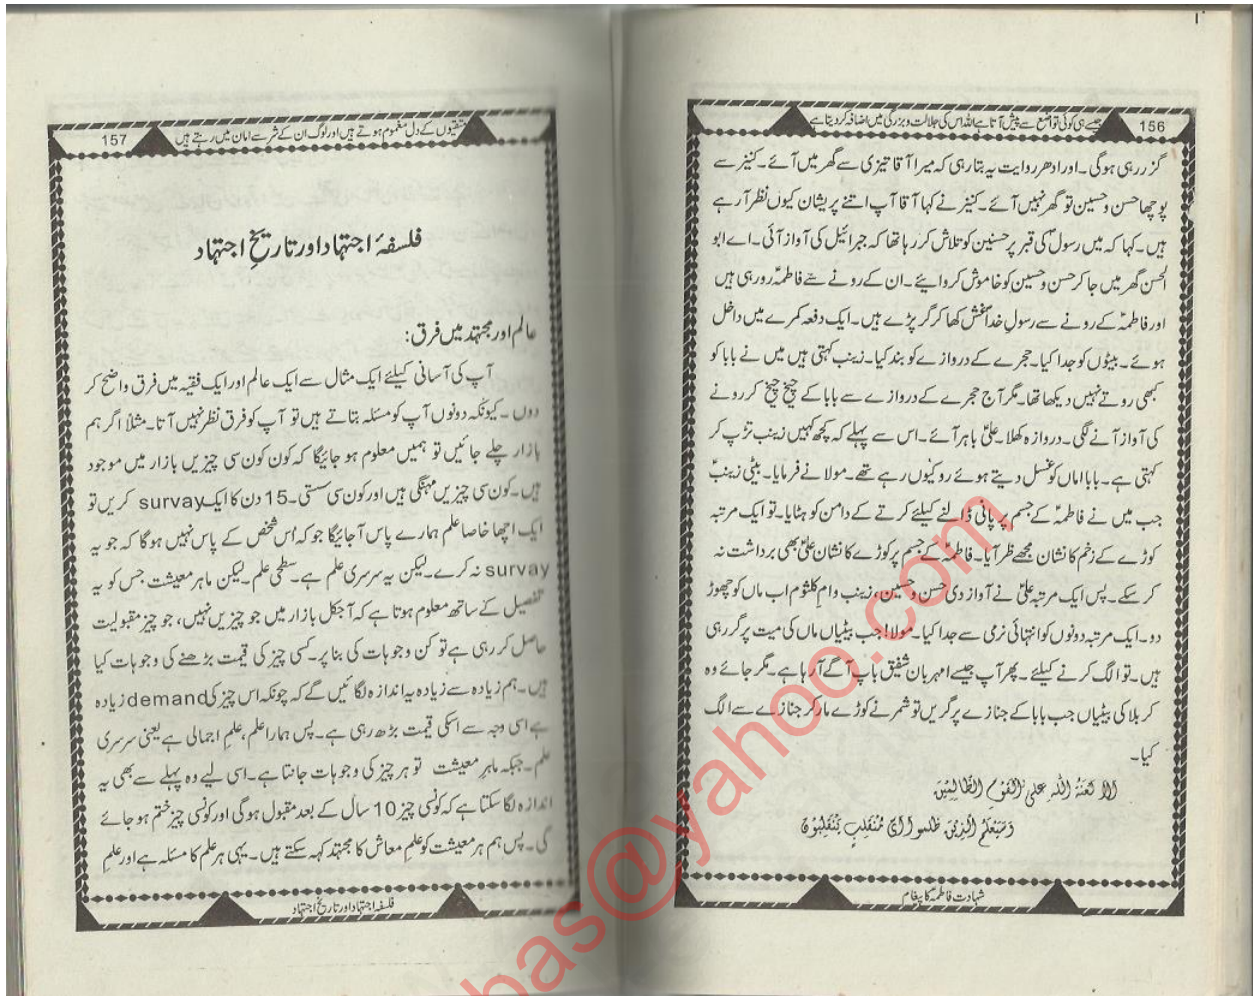 156
جیسے ہی کوئی تواضع سے پیش آتا ہے اللہ اس کی جلالت و بزرگی میں اضافہ کر دیتا ہے
گزر رہی ہوگی۔ اور ادھر روایت یہ بتا رہی کہ میرا آقا تیزی سے گھر میں آئے۔ کنیز سے
پوچھا حسن و حسین تو گھر نہیں آئے۔ کنیز نے کہا آقا آپ اتنے پریشان کیوں نظر آ رہے
ہیں۔ کہا کہ میں رسولؐ کی قبر پر حسنین کو تلاش کر رہا تھا کہ جبرائیل کی آواز آئی۔ اے ابو
الحسن گھر میں جا کر حسن و حسین کو خاموش کروایئے۔ ان کے رونے سے فاطمہؑ رو رہی ہیں
اور فاطمہؑ کے رونے سے رسولِ خداؐ غش کھا کر گر پڑے ہیں۔ ایک دفعہ کمرے میں داخل
ہوئے۔ بیٹوں کو جدا کیا۔ حجرے کے دروازے کو بند کیا۔ زینب کہتی ہیں میں نے بابا کو
کبھی روتے نہیں دیکھا تھا۔ مگر آج حجرے کے دروازے سے بابا کے چیخ چیخ کر رونے
کی آواز آنے لگی۔ دروازہ کھلا۔ علیؑ باہر آئے۔ اس سے پہلے کہ کچھ کہیں زینب تڑپ کر
کہتی ہے۔ بابا اماں کو غسل دیتے ہوئے رو کیوں رہے تھے۔ مولا نے فرمایا۔ بیٹی زینبؑ
جب میں نے فاطمہؑ کے جسم پر پانی ڈالنے کیلئے کرتے کے دامن کو ہٹایا۔ تو ایک مرتبہ
کوڑے کے زخم کا نشان مجھے نظر آیا۔ فاطمہؑ کے جسم پر کوڑے کا نشان علیؑ بھی برداشت نہ
کر سکے۔ پس ایک مرتبہ علیؑ نے آواز دی حسن و حسین، زینب و امِ کلثوم اب ماں کو چھوڑ
دو۔ ایک مرتبہ دونوں کو انتہائی نرمی سے جدا کیا۔ مولا! جب بیٹیاں ماں کی میت پر گر رہی
ہیں۔ تو الگ کرنے کیلئے۔ پھر آپ جیسے ا مہربان شفیق باپ آگے آ رہا ہے۔ مگر جائے وہ
کربلا کی بیٹیاں جب بابا کے جنازے پر گریں تو شمر نے کوڑے مار کر جنازے سے الگ
کیا۔
الا لعنۃ اللہ علی القوم الظالمین
وسیعلم الذین ظلموا ای منقلب ینقلبون
شہادت فاطمہؑ کا پیغام
157
متقیوں کے دل مغموم ہوتے ہیں اور لوگ ان کے شر سے امان میں رہتے ہیں
فلسفۂ اجتہاد اور تاریخِ اجتہاد
عالم اور مجتہد میں فرق:
آپ کی آسانی کیلئے ایک مثال سے ایک عالم اور ایک فقیہ میں فرق واضح کر
دوں۔ کیونکہ دونوں آپ کو مسئلہ بتاتے ہیں تو آپ کو فرق نظر نہیں آتا۔ مثلاً اگر ہم
بازار چلے جائیں تو ہمیں معلوم ہو جائیگا کہ کون کون سی چیزیں بازار میں موجود
ہیں۔ کون سی چیزیں مہنگی ہیں اور کون سی سستی۔ 15 دن کا ایک survay کریں تو
ایک اچھا خاصا علم ہمارے پاس آ جائیگا جو کہ اُس شخص کے پاس نہیں ہوگا کہ جو یہ
survay نہ کرے۔ لیکن یہ سرسری علم ہے۔ سطحی علم۔ لیکن ماہر معیشت جس کو یہ
تفصیل کے ساتھ معلوم ہوتا ہے کہ آجکل بازار میں جو چیزیں نہیں، جو چیز مقبولیت
حاصل کر رہی ہے تو کن وجوہات کی بنا پر۔ کسی چیز کی قیمت بڑھنے کی وجوہات کیا
ہیں۔ ہم زیادہ سے زیادہ یہ اندازہ لگائیں گے کہ چونکہ اس چیز کی demand زیادہ
ہے اسی وجہ سے اسکی قیمت بڑھ رہی ہے۔ پس ہمارا علم، علمِ اجمالی ہے یعنی سرسری
علم۔ جبکہ ماہرِ معیشت تو ہر چیز کی وجوہات جانتا ہے۔ اسی لیے وہ پہلے سے بھی یہ
اندازہ لگا سکتا ہے کہ کونسی چیز 10 سال کے بعد مقبول ہوگی اور کونسی چیز ختم ہو جائے
گی۔ پس ہم ہر معیشت کو علمِ معاش کا مجتہد کہہ سکتے ہیں۔ یہی ہر علم کا مسئلہ ہے اور علمِ
فلسفہ اجتہاد اور تاریخ اجتہاد
bas@yahoo.com